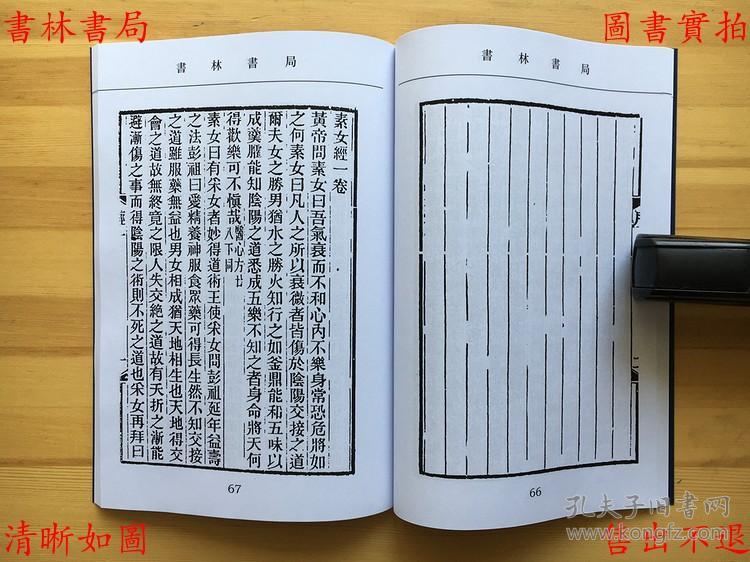 書林書局
圖書實拍
書林書局
書林書局
素女經一卷
黃帝問素女曰吾氣衰而不和心內不樂身常恐危將如
之何素女曰凡人之所以衰微者皆傷於陰陽交接之道
爾夫女之勝男猶水之勝火知行之如釜鼎能和五味以
成羹臛能知陰陽之道悉成五樂不知之者身命將夭何
得歡樂可不慎哉醫心方廿八下同
素女曰有采女者妙得道術王使采女問彭祖延年益壽
之法彭祖曰愛精養神服食眾藥可得長生然不知交接
之道雖服藥無益也男女相成猶天地相生也天地得交
會之道故無終竟之限人失交絕之道故有夭折之漸能
避漸傷之事而得陰陽之術則不死之道也采女再拜曰
67
66
清晰如圖
售出不退
孔夫子旧书网
www.kongfz.com